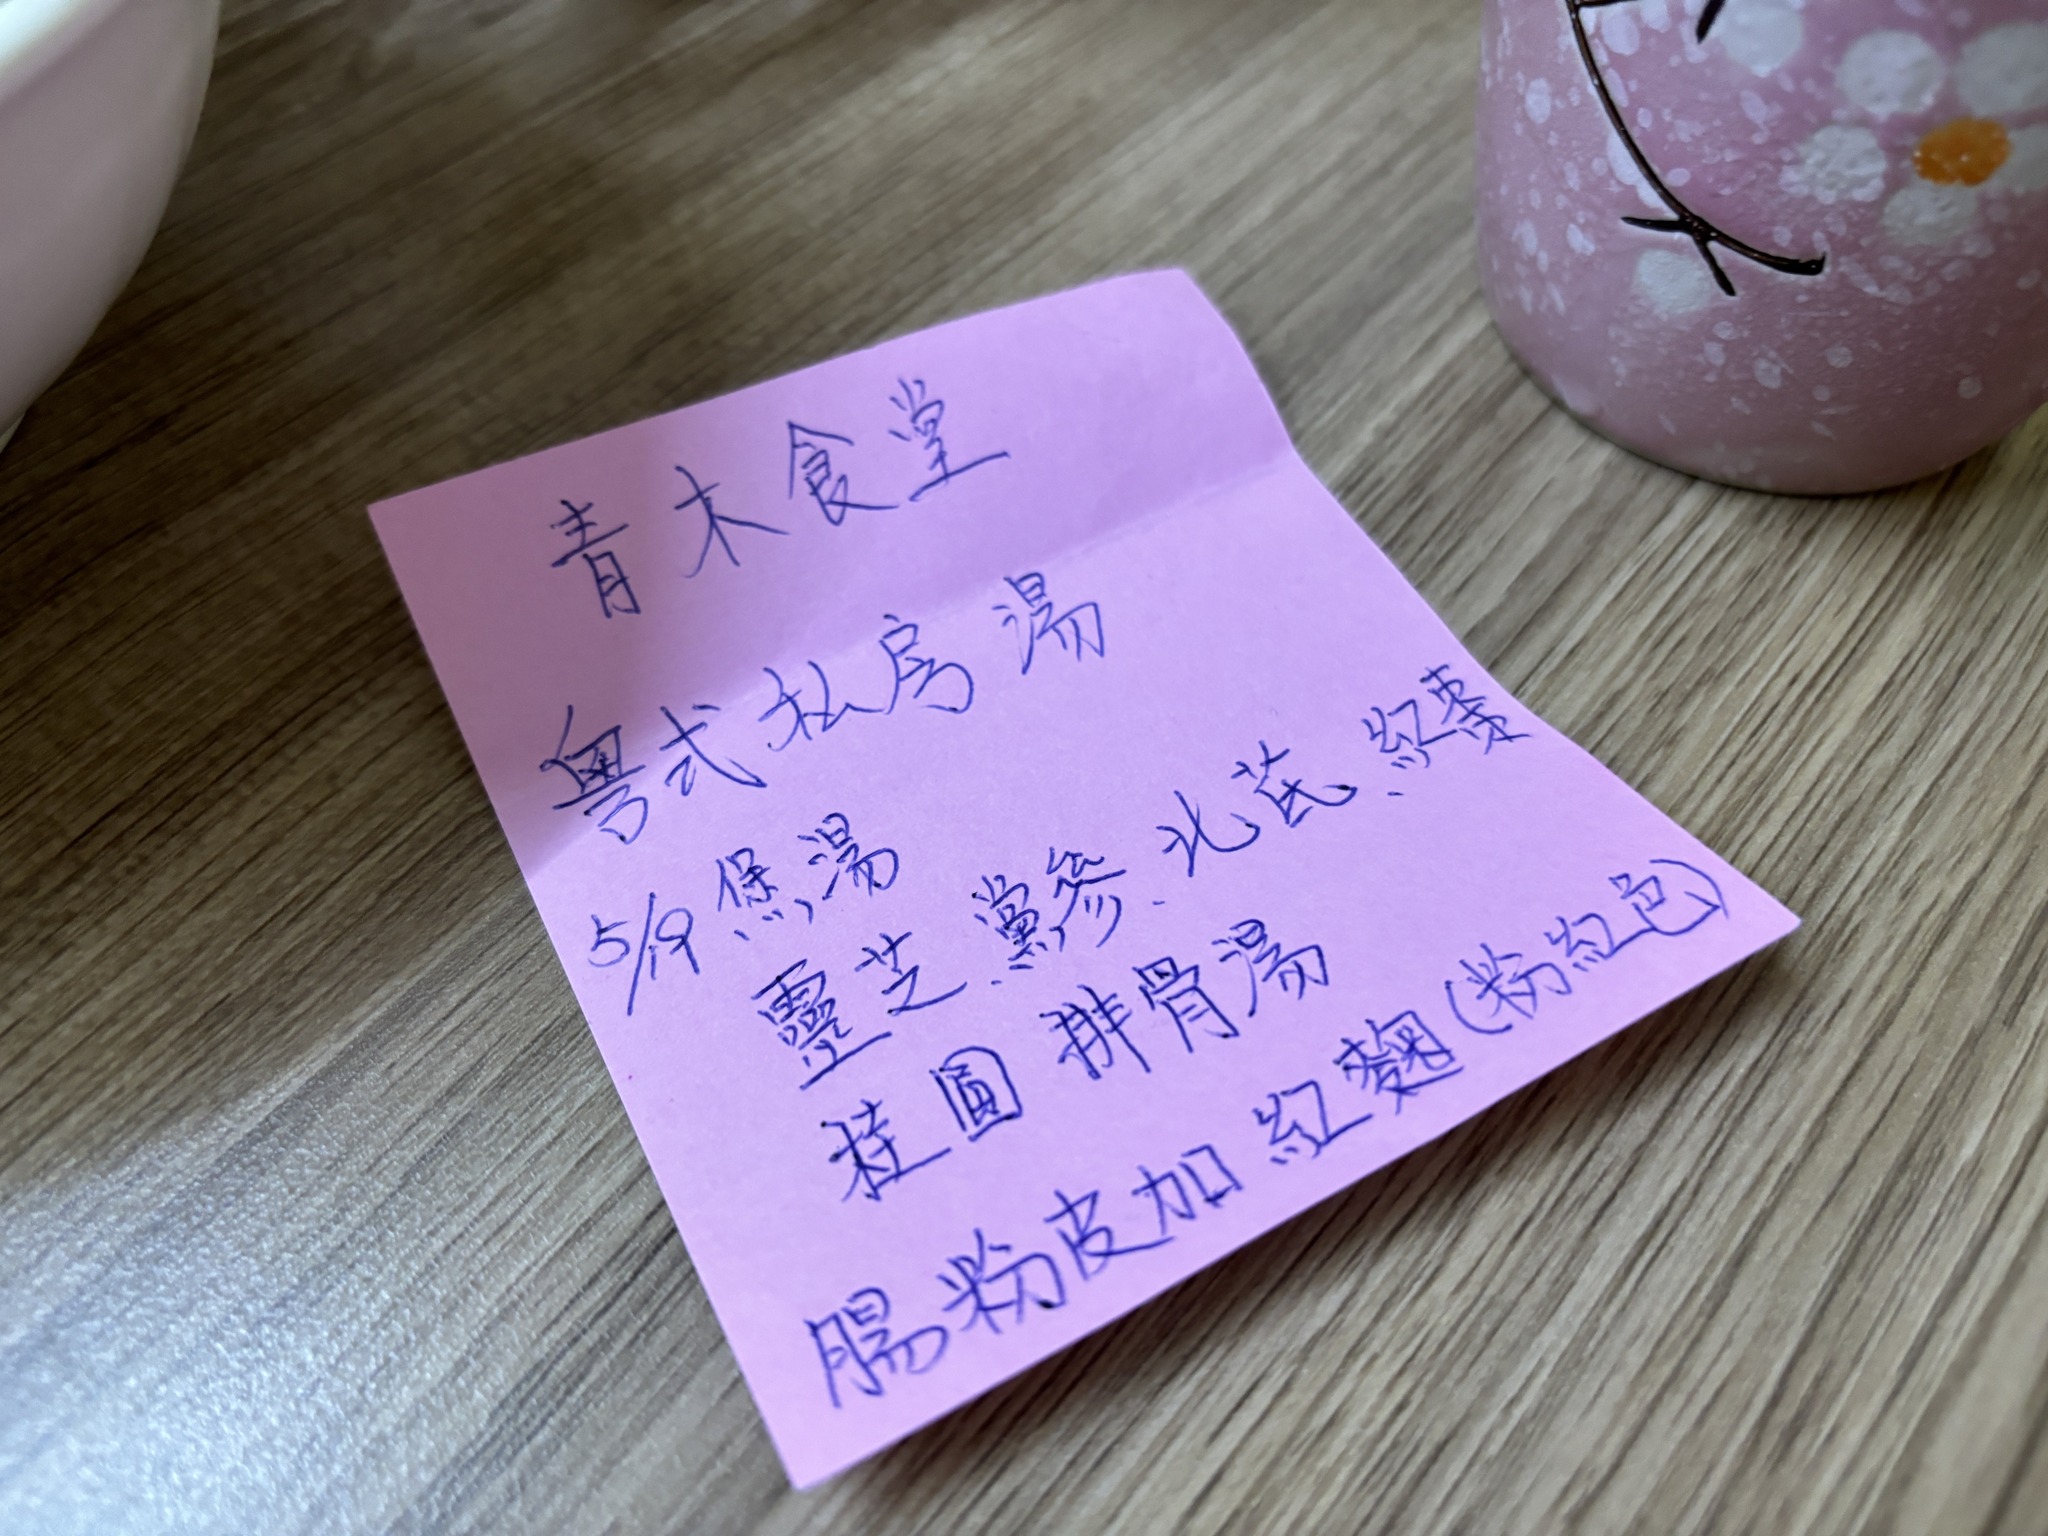 青木食堂
粵式私房湯
5/19 煲湯
靈芝、黨參、北芪、紅棗
桂圓排骨湯
腸粉皮加紅麴(粉紅色)